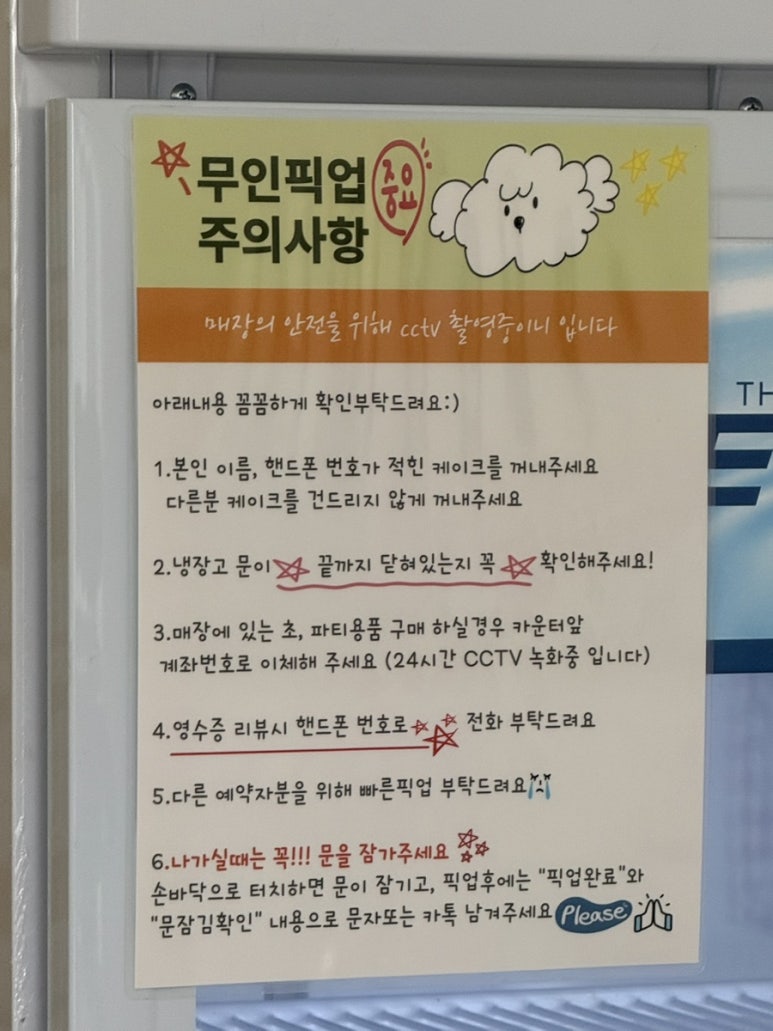 무인픽업
중요
주의사항
매장의 안전을 위해 cctv 촬영중이니 입니다
아래내용 꼼꼼하게 확인부탁드려요:)
1.본인 이름, 핸드폰 번호가 적힌 케이크를 꺼내주세요
다른분 케이크를 건드리지 않게 꺼내주세요
2.냉장고 문이 끝까지 닫혀있는지 꼭 확인해주세요!
3.매장에 있는 초, 파티용품 구매 하실경우 카운터앞
계좌번호로 이체해 주세요 (24시간 CCTV 녹화중 입니다)
4.영수증 리뷰시 핸드폰 번호로 전화 부탁드려요
5.다른 예약자분을 위해 빠른픽업 부탁드려요
6.나가실때는 꼭!!! 문을 잠가주세요
손바닥으로 터치하면 문이 잠기고, 픽업후에는 "픽업완료"와
"문잠김확인" 내용으로 문자또는 카톡 남겨주세요 Please
TH